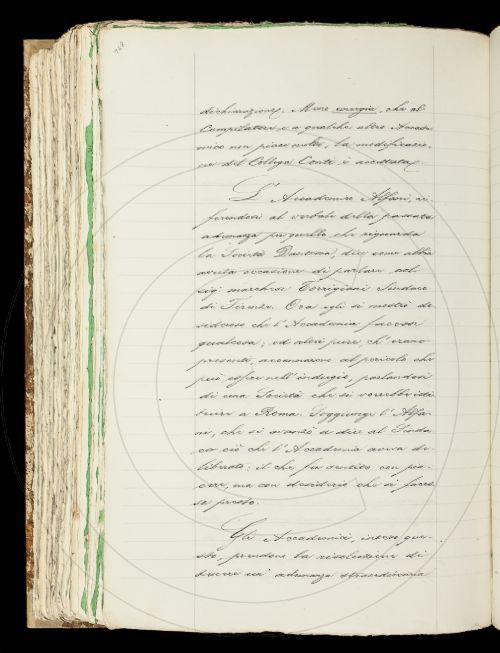 dichiarazione. Meno energia, che al
Compilatore e a qualche altro Accade-
mico non piace molto, la modificazio-
ne del Collega Conti è accettata.
L'Accademico Alfani, ri-
ferendosi al verbale della passata
adunanza per quello che riguarda
la Società Dantesca, dice come abbia
avuta occasione di parlare col
sig. marchese Torrigiani Sindaco
di Firenze. Ora egli si mostrò de-
sideroso che l'Accademia facesse
qualcosa; ed altri pure, ch'erano
presenti, accennarono al pericolo che
può essere nell'indugio, parlandosi
di una Società che si vorrebbe isti-
tuire a Roma. Soggiunge l'Alfa-
ni, che si avanzò a dire al Sinda-
co ciò che l'Accademia aveva de-
liberato; il che fu sentito con pia-
cere, ma con desiderio che si faces-
se presto.
Gli Accademici, inteso que-
sto, prendono la risoluzione di
tenere un'adunanza straordinaria